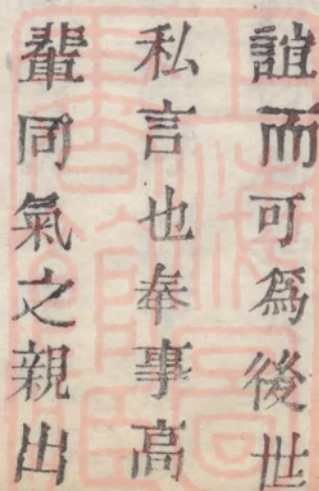 誼而可爲後世
私言也奉事高
輩同氣之親出